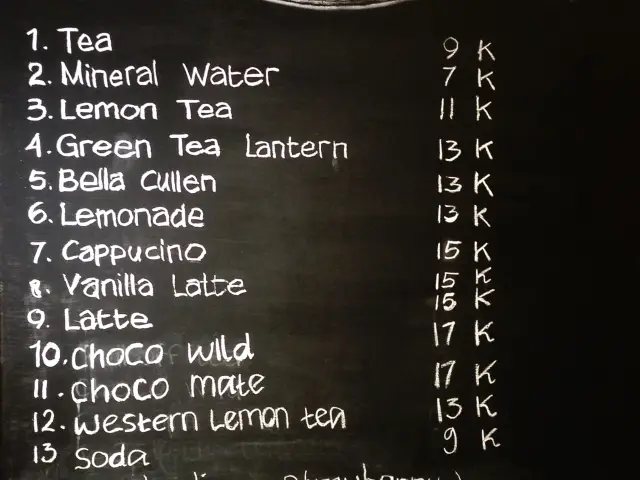 1. Tea 9 K
2. Mineral Water 7 K
3. Lemon Tea 11 K
4. Green Tea Lantern 13 K
5. Bella Cullen 13 K
6. Lemonade 13 K
7. Cappucino 15 K
8. Vanilla Latte 15 K
9. Latte 15 K
10. Choco Wild 17 K
11. Choco Mate 17 K
12. Western Lemon tea 13 K
13 Soda 9 K